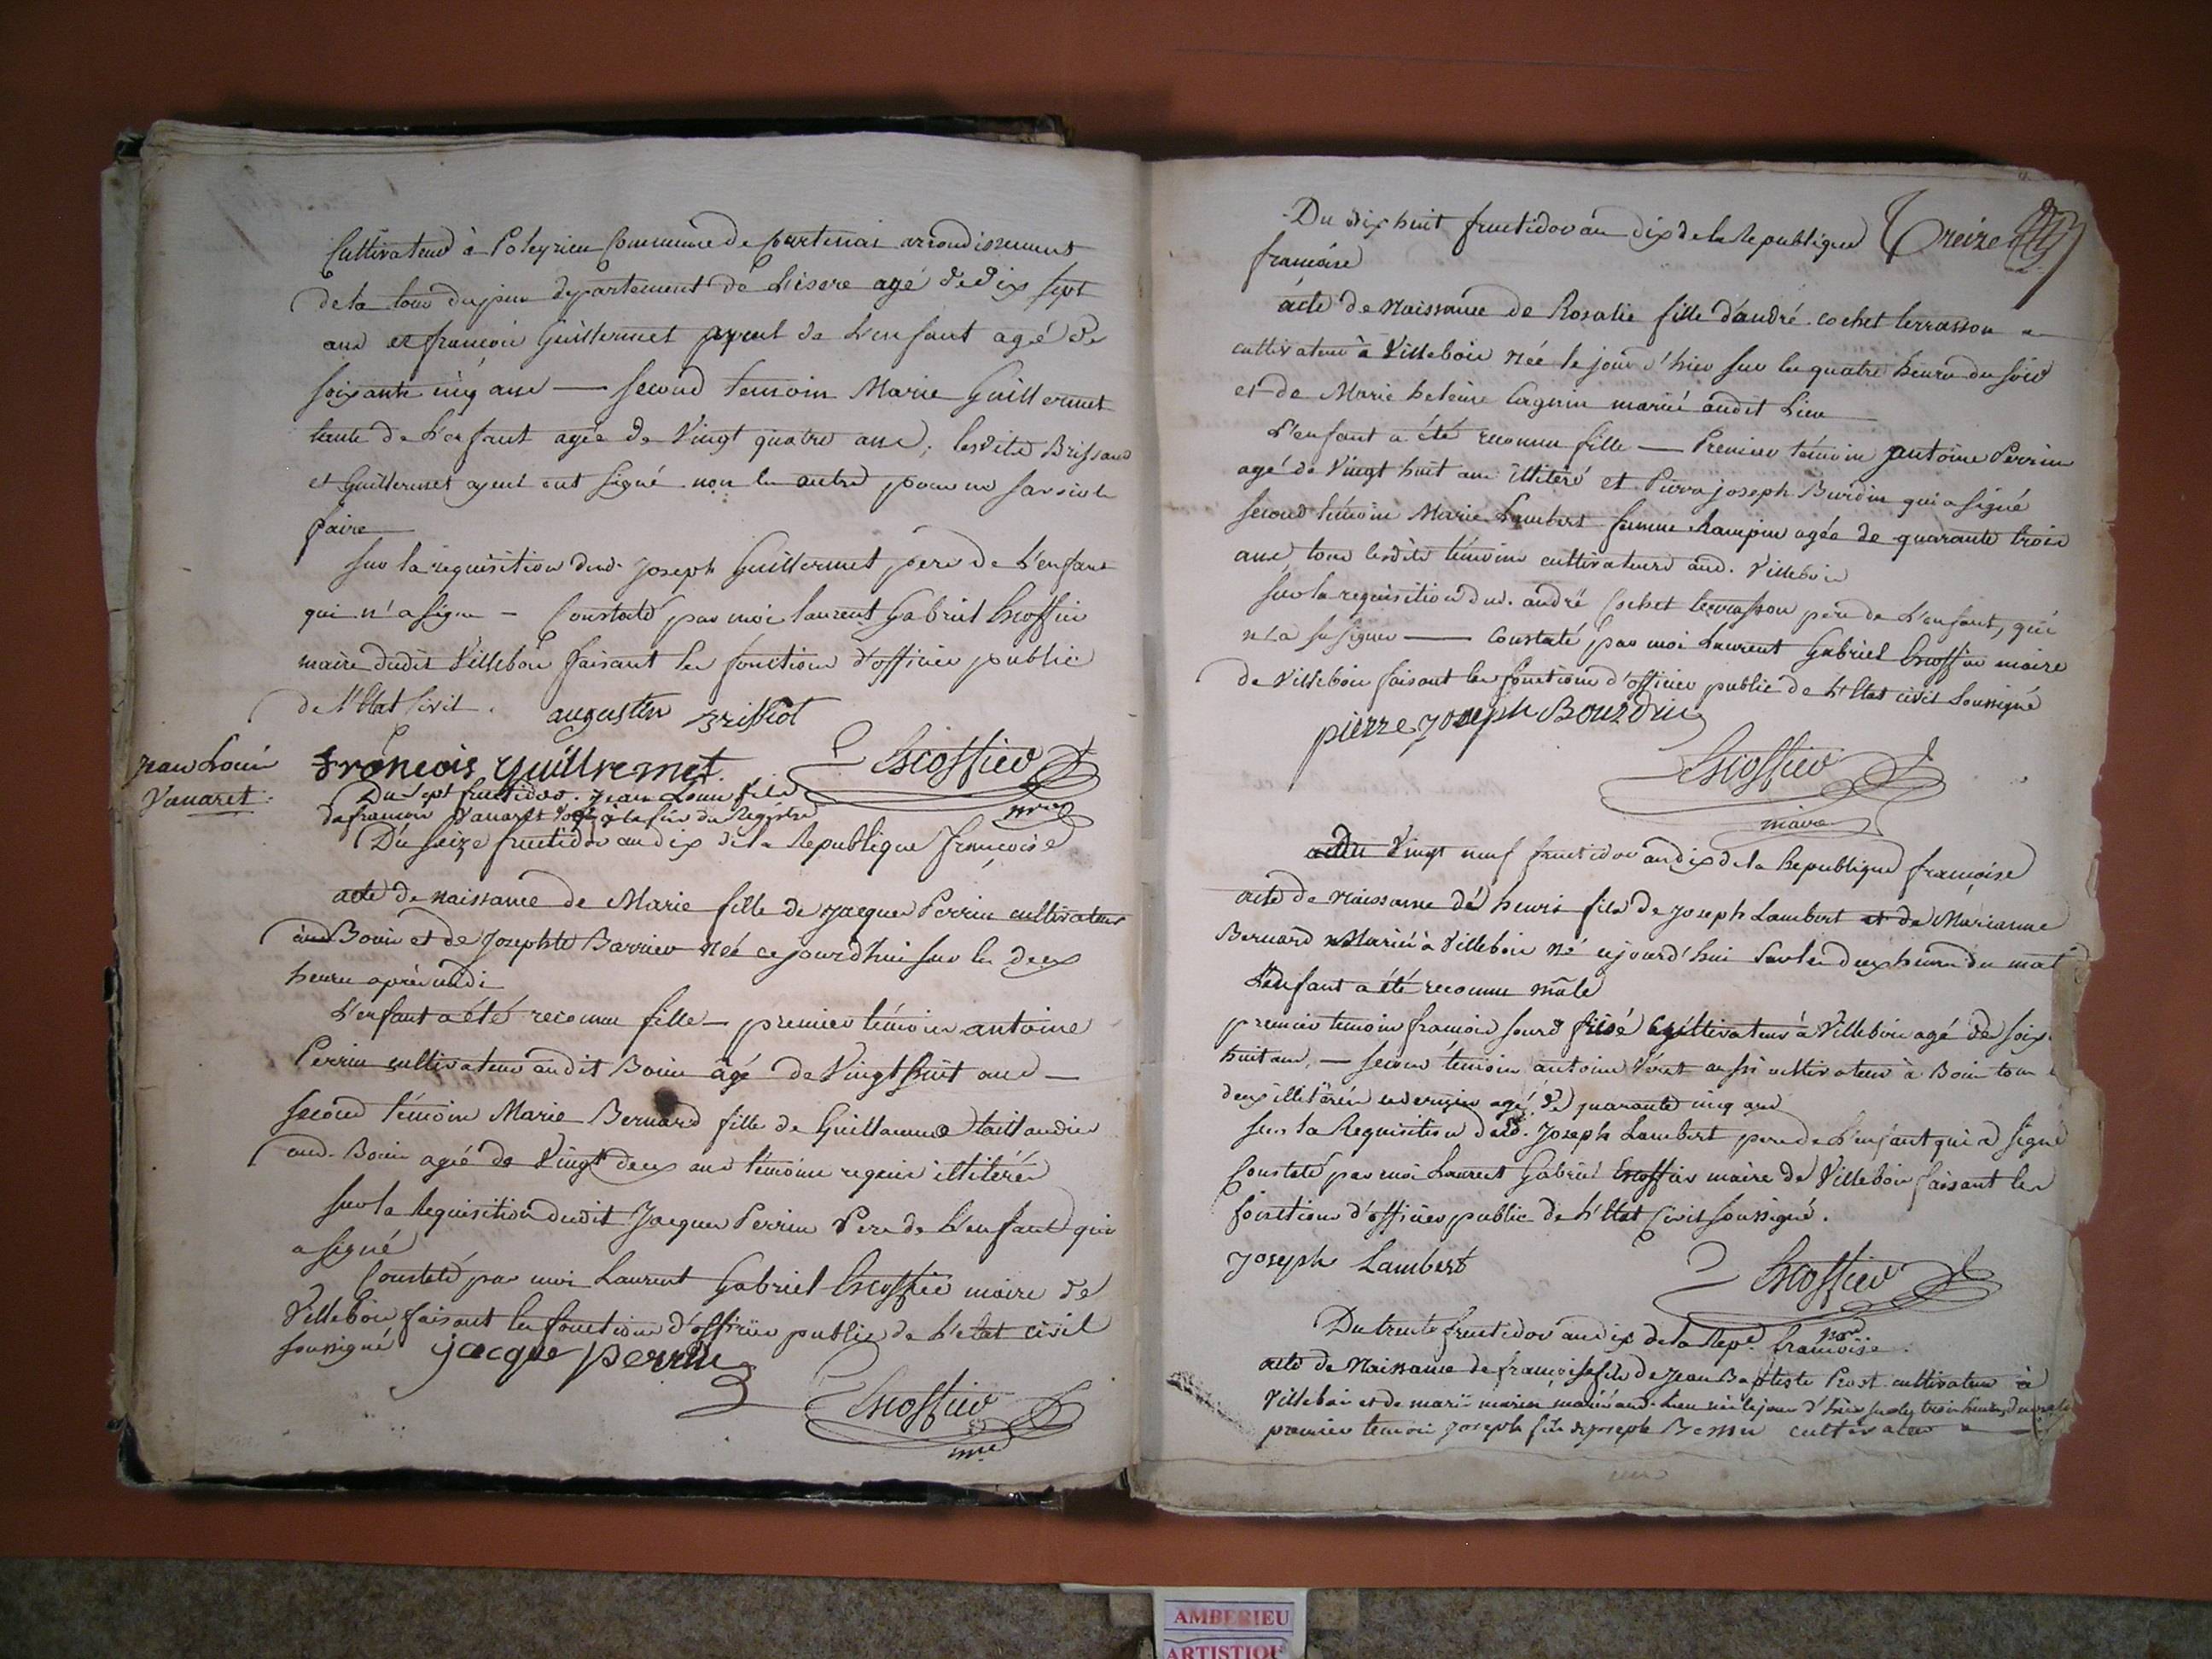 Cultivateur à Poleyrieu Commune de Courtenai arrondissement
de la tour dupin departement de L'isere agé de dix sept
ans et françois Guillermet ayeul de L'enfant agé de
soixante cinq ans — second temoin Marie Guillermet
tante de L'enfant agée de Vingt quatre ans; lesdits Brissaud
et Guillermet ayeul ont signé non les autres pour ne savoir le
faire
sur la requisition dud. Joseph Guillermet père de L'enfant
qui n'a signé — Constaté par moi Laurent Gabriel Escoffier
maire dudit Villebois faisant les fonctions d'officier public
de l'Etat Civil.
augustin
françois guillremet
Escoffier
mre
Jean Louis
Vanaret
Du sept fructidor. Jean Louis fils
de françois Vanaret à la fin du Régistre
Du seize fructidor an dix de la Republique françoise
acte de naissance de Marie fille de Jacques Perrin cultivateur
à Bouis et de Josephte Barrier née ce jourd'hui sur les deux
heures après midi
L'enfant a été reconnu fille — premier témoin antoine
Perrin cultivateur audit Bouis agé de Vingt huit ans —
second témoin Marie Bernard fille de Guillaume taillandier
aud. Bouis agée de Vingt deux ans témoins requis illitérés
sur la Requisition dudit Jacques Perrin Pere de L'enfant qui
a signé
Constaté par moi Laurent Gabriel Escoffier maire de
Villebois faisant les fonctions d'officier public de L'etat civil
soussigné jacque perrin
Escoffier
mre
Du dix huit fructidor an dix de la Republique
Treize
françoise
acte de Naissance de Rosalie fille d'andré Cochet terrasson
cultivateur à Villebois née le jour d'hier sur les quatre heures du soir
et de Marie heleine Cagnin mariés audit Lieu
L'enfant a été reconnu fille — Premier témoin antoine Perrin
agé de Vingt huit ans illitéré et Pierre joseph Burdin qui a signé
second témoin Marie Lambert femme agée de quarante trois
ans, tous lesdits témoins cultivateurs aud. Villebois
sur la requisition dud. andré Cochet terrasson père de L'enfant, qui
n'a su signer — Constaté par moi Laurent Gabriel Escoffier maire
de Villebois faisant les fonctions d'officier public de L'Etat civil soussigné
pierre joseph Bourdin
Escoffier
maire
Du Vingt neuf fructidor an dix de la Republique françoise
acte de Naissance de henri fils de Joseph Lambert et de Marianne
Bernard Mariés à Villebois né cejourd'hui sur les deux heures du mat
L'enfant a été reconnu mâle
premier temoin françois sourd cultivateur à Villebois agé de soix
huit ans, — second témoin antoine aussi cultivateur à Bouis tous
deux illitérés ce dernier agé de quarante cinq ans
sur la Requisition dud. Joseph Lambert pere de L'enfant qui a signé
Constaté par moi Laurent Gabriel Escoffier maire de Villebois faisant les
fonctions d'officier public de L'Etat Civil soussigné.
Joseph Lambert
Escoffier
mre
Du trente fructidor an dix de la Repe. françoise.
acte de Naissance de de Jean Baptiste Prost cultivateur à
Villebois et de mariés aud. Lieu le jour d'hier sur les trois heures du
premier temoin Joseph fils de joseph cultivateur à
AMBERIEU
ARTISTIQU